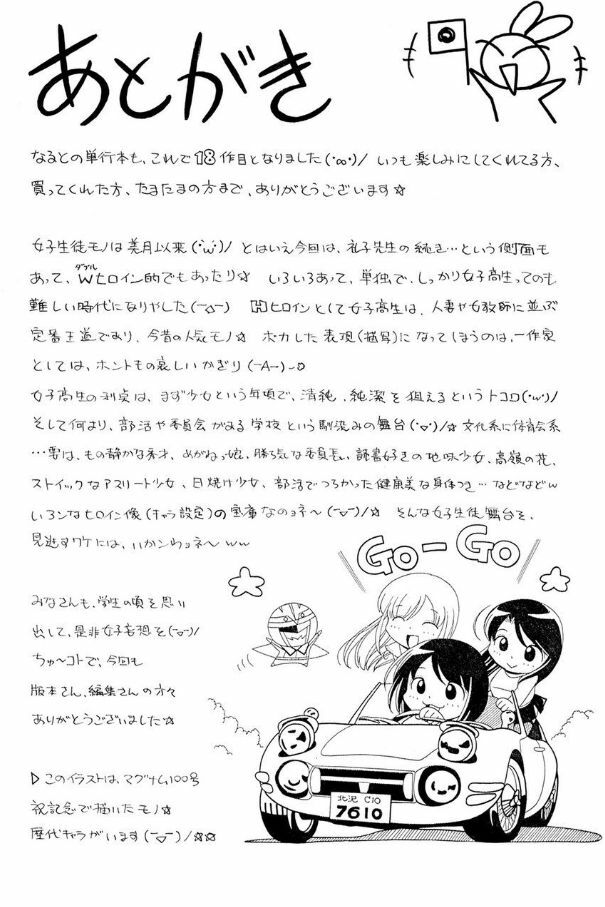 あとがき
なるとの単行本も、これで18作目となりました(･∞･)/ いつも楽しみにしてくれてる方、
買ってくれた方、たまたまの方まで、ありがとうございます☆
女子生徒モノは美月以来(･w･)/ とはいえ今回は、礼子先生の続き…という側面も
あって、Wヒロイン的でもあったり☆ いろいろあって、単独で、しっかり女子高生ってのも
ダブル
難しい時代になりやした(ー△ー) Hヒロインとして女子高生は、人妻や女教師に並ぶ
定番王道であり、今昔の人気モノ☆ ボカした表現(描写)になってしまうのは、一作家
としては、ホントもの哀しいかぎり(ーAー)
女子高生の利点は、まず少女という年頃で、清純、純潔を狙えるというトコロ(･w･)/
そして何より、部活や委員会がある学校という馴染みの舞台(･▽･)/☆ 文化系に体育会系
…要は、もの静かな秀才、めがねっ娘、勝ち気な委員長、読書好きの地味少女、高嶺の花、
ストイックなアスリート少女、日焼け少女、部活でつちかった健康美な身体つき…などなどw
いろンなヒロイン像(キャラ設定)の宝庫なのョネ〜(ー▽ー)/☆ そんな女子生徒舞台を、
見逃すワケには、いかンわョネ〜ww
GO-GO
みなさんも、学生の頃を思い
出して、是非女子妄想を(ー▽ー)/
ちゅ〜コトで、今回も
版本さん、編集さんの方々
ありがとうございました☆
▷このイラストは、マグナム100号
祝記念で描いたモノ☆
歴代キャラがいます(ー▽ー)/☆☆
北沢 C10
7610